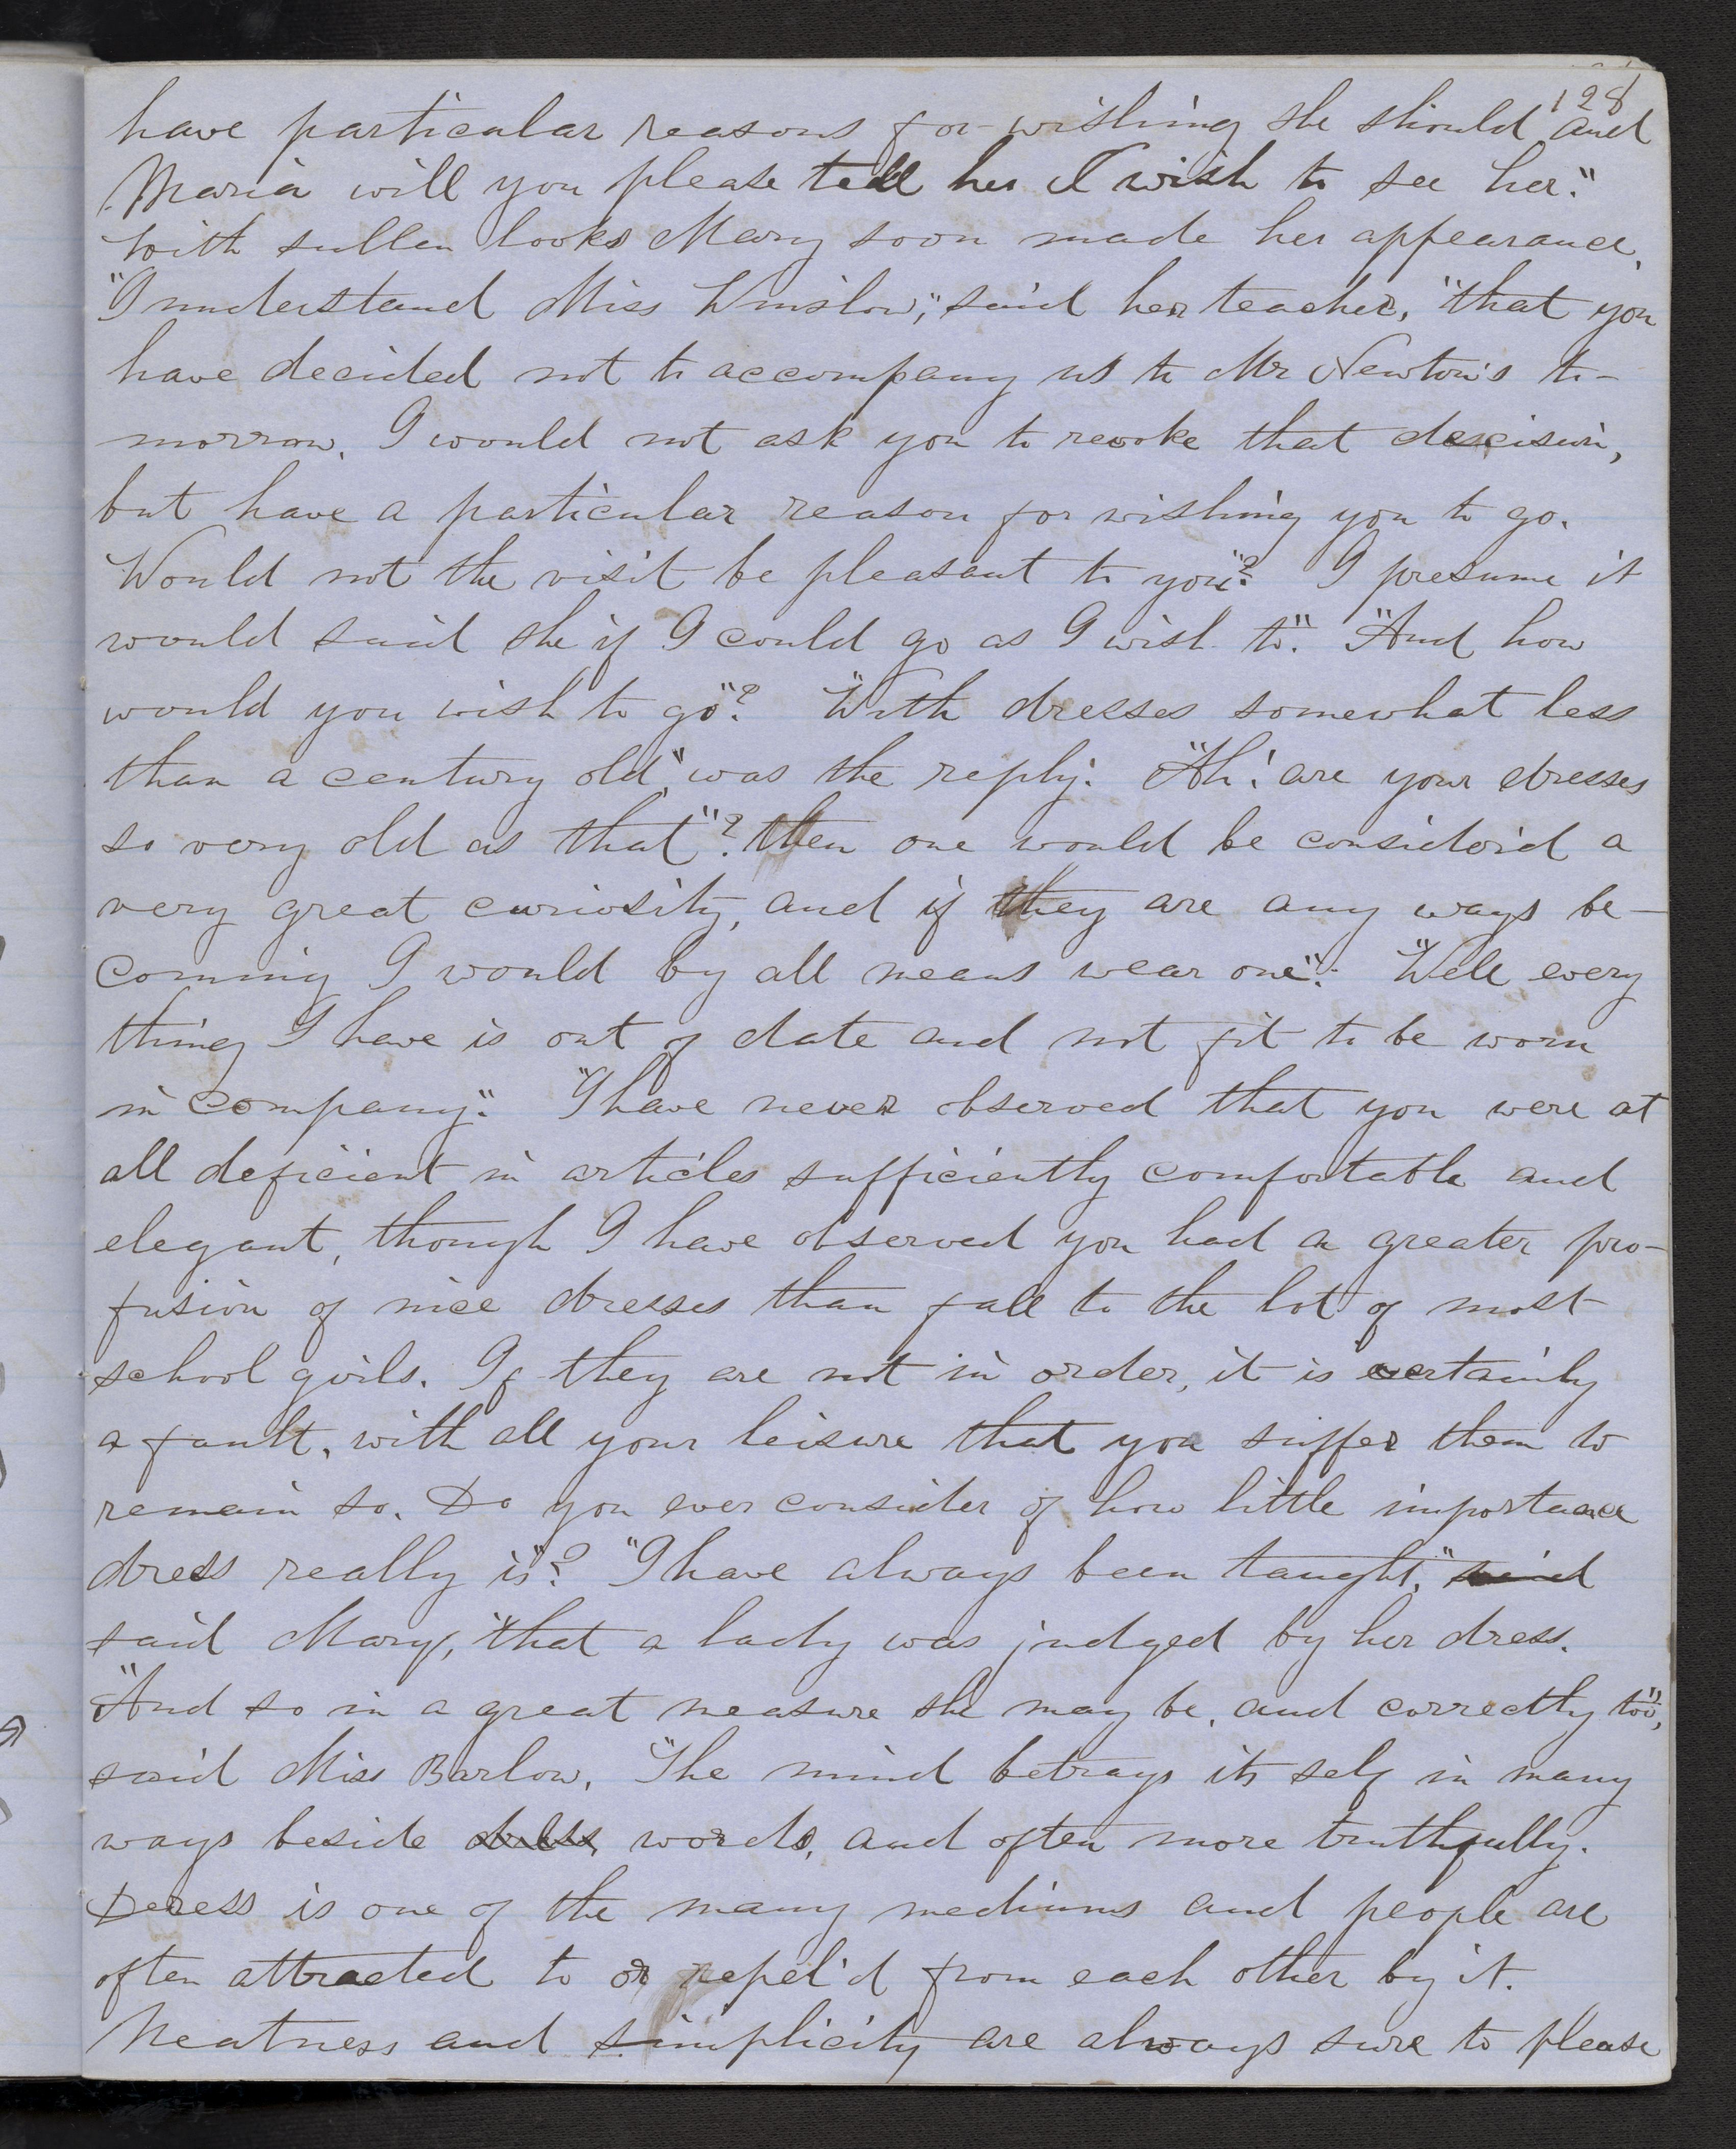 128
have particular reasons for wishing she should and
Maria will you please tell her I wish to see her."
With sullen looks Mary soon made her appearance.
"I understand Miss Winslow," said her teacher, "that you
have decided not to accompany us to Mr Newton's to-
morrow. I would not ask you to revoke that descision,
but have a particular reason for wishing you to go.
Would not the visit be pleasant to you"? I presume it
would said she if I could go as I wish to". "And how
would you wish to go"? "With dresses somewhat less
than a century old," was the reply. "Ah! are your dresses
so very old as that"? then one would be considerd a
very great curiosity, and if they are any ways be-
coming I would by all means wear one". "Well every
thing I have is out of date and not fit to be worn
in company". "I have never observed that you were at
all deficient in articles sufficiently comfortable and
elegant, though I have observed you had a greater pro-
fusion of nice dresses than fall to the lot of most
school girls. If they are not in order, it is certainly
a fault, with all your leisure that you suffer them to
remain so. Do you ever consider of how little importance
dress really is"? "I have always been taught," said
said Mary, "that a lady was judged by her dress.
"And so in a great measure she may be, and correctly too",
said Miss Barlow, "The mind betrays its self in many
ways beside dress words, and often more truthfully.
Deress is one of the many mediums and people are
often attracted to or repel'd from each other by it.
Neatness and simplicity are always sure to please